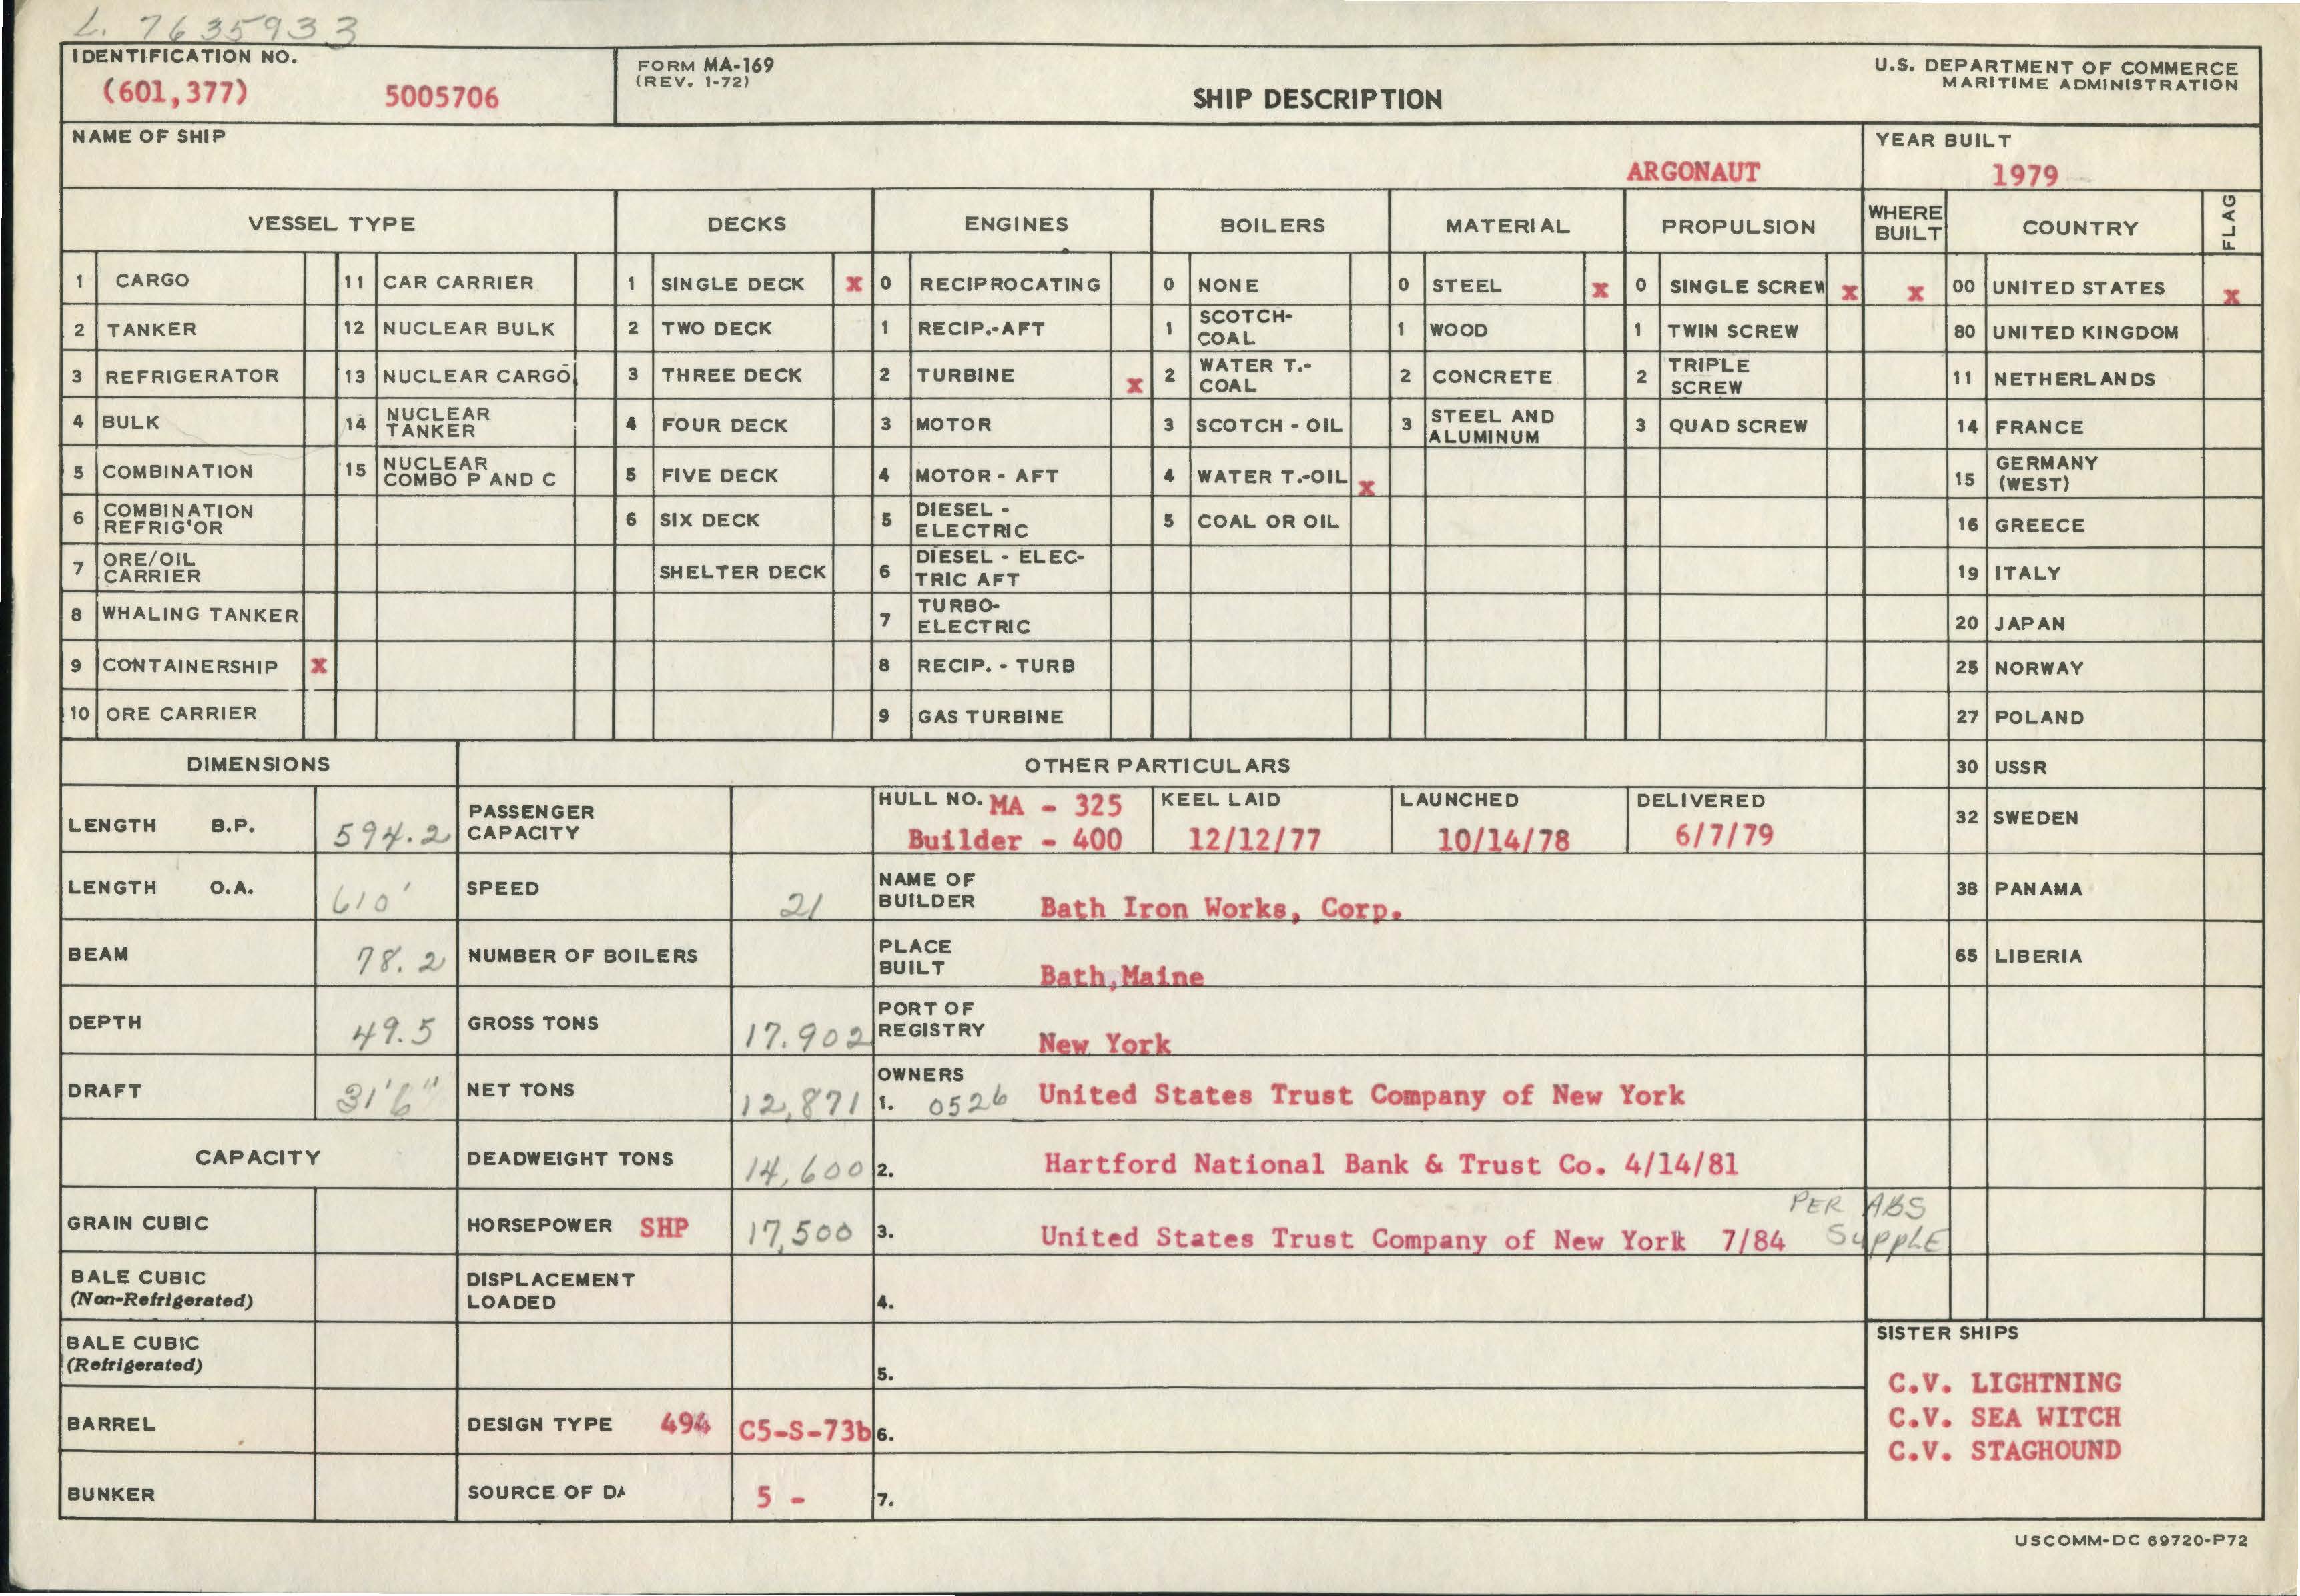 L. 7635933
IDENTIFICATION NO.
(601,377) 5005706
FORM MA-169
(REV. 1-72)
SHIP DESCRIPTION
U.S. DEPARTMENT OF COMMERCE
MARITIME ADMINISTRATION
NAME OF SHIP
ARGONAUT
YEAR BUILT
1979
VESSEL TYPE DECKS ENGINES BOILERS MATERIAL PROPULSION WHERE BUILT COUNTRY FLAG
1 CARGO 11 CAR CARRIER 1 SINGLE DECK x 0 RECIPROCATING 0 NONE 0 STEEL x 0 SINGLE SCREW x x 00 UNITED STATES x
2 TANKER 12 NUCLEAR BULK 2 TWO DECK 1 RECIP.-AFT 1 SCOTCH-COAL 1 WOOD 1 TWIN SCREW 80 UNITED KINGDOM
3 REFRIGERATOR 13 NUCLEAR CARGO 3 THREE DECK 2 TURBINE x 2 WATER T.-COAL 2 CONCRETE 2 TRIPLE SCREW 11 NETHERLANDS
4 BULK 14 NUCLEAR TANKER 4 FOUR DECK 3 MOTOR 3 SCOTCH - OIL 3 STEEL AND ALUMINUM 3 QUAD SCREW 14 FRANCE
5 COMBINATION 15 NUCLEAR COMBO P AND C 5 FIVE DECK 4 MOTOR - AFT 4 WATER T.-OIL x 15 GERMANY (WEST)
6 COMBINATION REFRIG'OR 6 SIX DECK 5 DIESEL - ELECTRIC 5 COAL OR OIL 16 GREECE
7 ORE/OIL CARRIER SHELTER DECK 6 DIESEL - ELEC-TRIC AFT 19 ITALY
8 WHALING TANKER 7 TURBO-ELECTRIC 20 JAPAN
9 CONTAINERSHIP x 8 RECIP. - TURB 25 NORWAY
10 ORE CARRIER 9 GAS TURBINE 27 POLAND
DIMENSIONS OTHER PARTICULARS 30 USSR
LENGTH B.P. 594.2 PASSENGER CAPACITY
HULL NO. MA - 325
Builder - 400
KEEL LAID
12/12/77
LAUNCHED
10/14/78
DELIVERED
6/7/79
32 SWEDEN
LENGTH O.A. 610' SPEED 21 NAME OF BUILDER Bath Iron Works, Corp. 38 PANAMA
BEAM 78.2 NUMBER OF BOILERS PLACE BUILT Bath,Maine 65 LIBERIA
DEPTH 49.5 GROSS TONS 17.902 PORT OF REGISTRY New York
DRAFT 31'6" NET TONS 12,871 OWNERS 1. 0526 United States Trust Company of New York
CAPACITY DEADWEIGHT TONS 14,600 2. Hartford National Bank & Trust Co. 4/14/81
GRAIN CUBIC HORSEPOWER SHP 17,500 3. United States Trust Company of New York 7/84 PER ABS SUPPLE
BALE CUBIC (Non-Refrigerated) DISPLACEMENT LOADED 4.
BALE CUBIC (Refrigerated) 5.
BARREL DESIGN TYPE 494 C5-S-73b 6.
BUNKER SOURCE OF DA 5 - 7.
SISTER SHIPS
C.V. LIGHTNING
C.V. SEA WITCH
C.V. STAGHOUND
USCOMM-DC 69720-P72